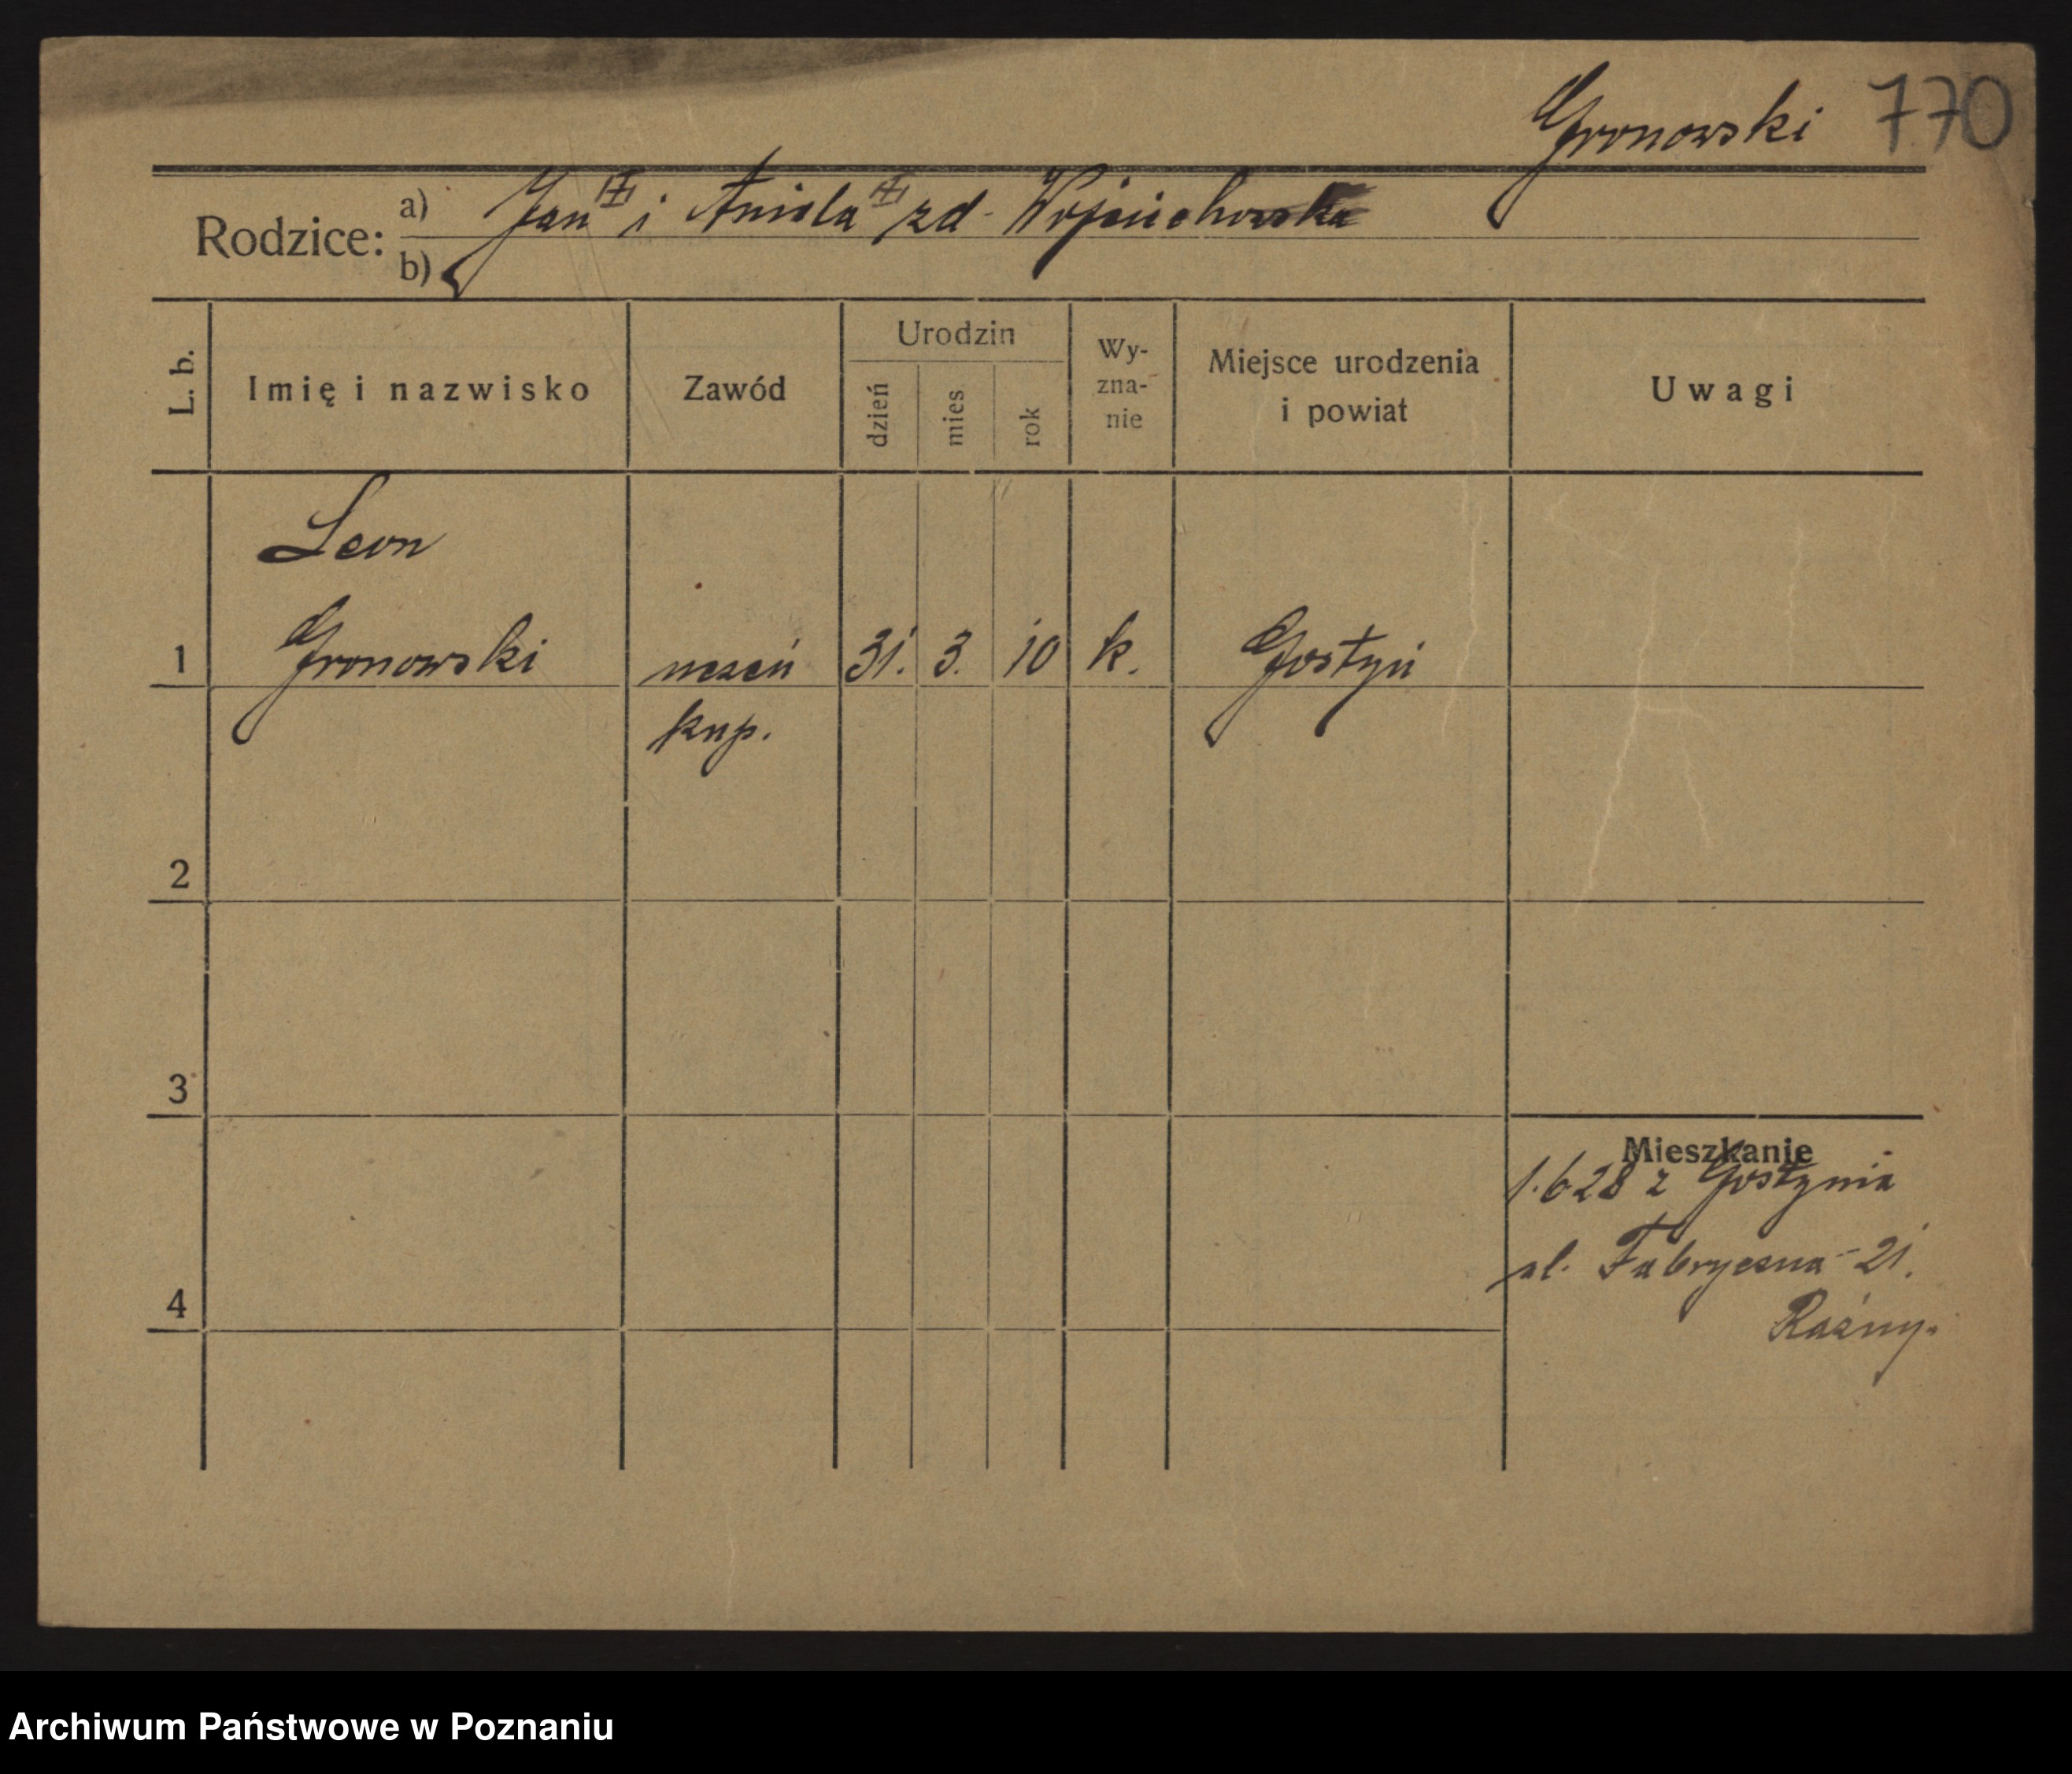 Gronowski 770
Rodzice: a) Jan i Aniela zd. Wojciechowska
b)
L. b.
Imię i nazwisko
Zawód
Urodzin
dzień
mies
rok
Wy-
zna-
nie
Miejsce urodzenia
i powiat
Uwagi
Leon
1 Gronowski uczeń 31. 3. 10 k. Gostyń
kup.
2
3
Mieszkanie
1.6.28 z Gostynia
ul. Fabryczna 21.
4
Archiwum Państwowe w Poznaniu